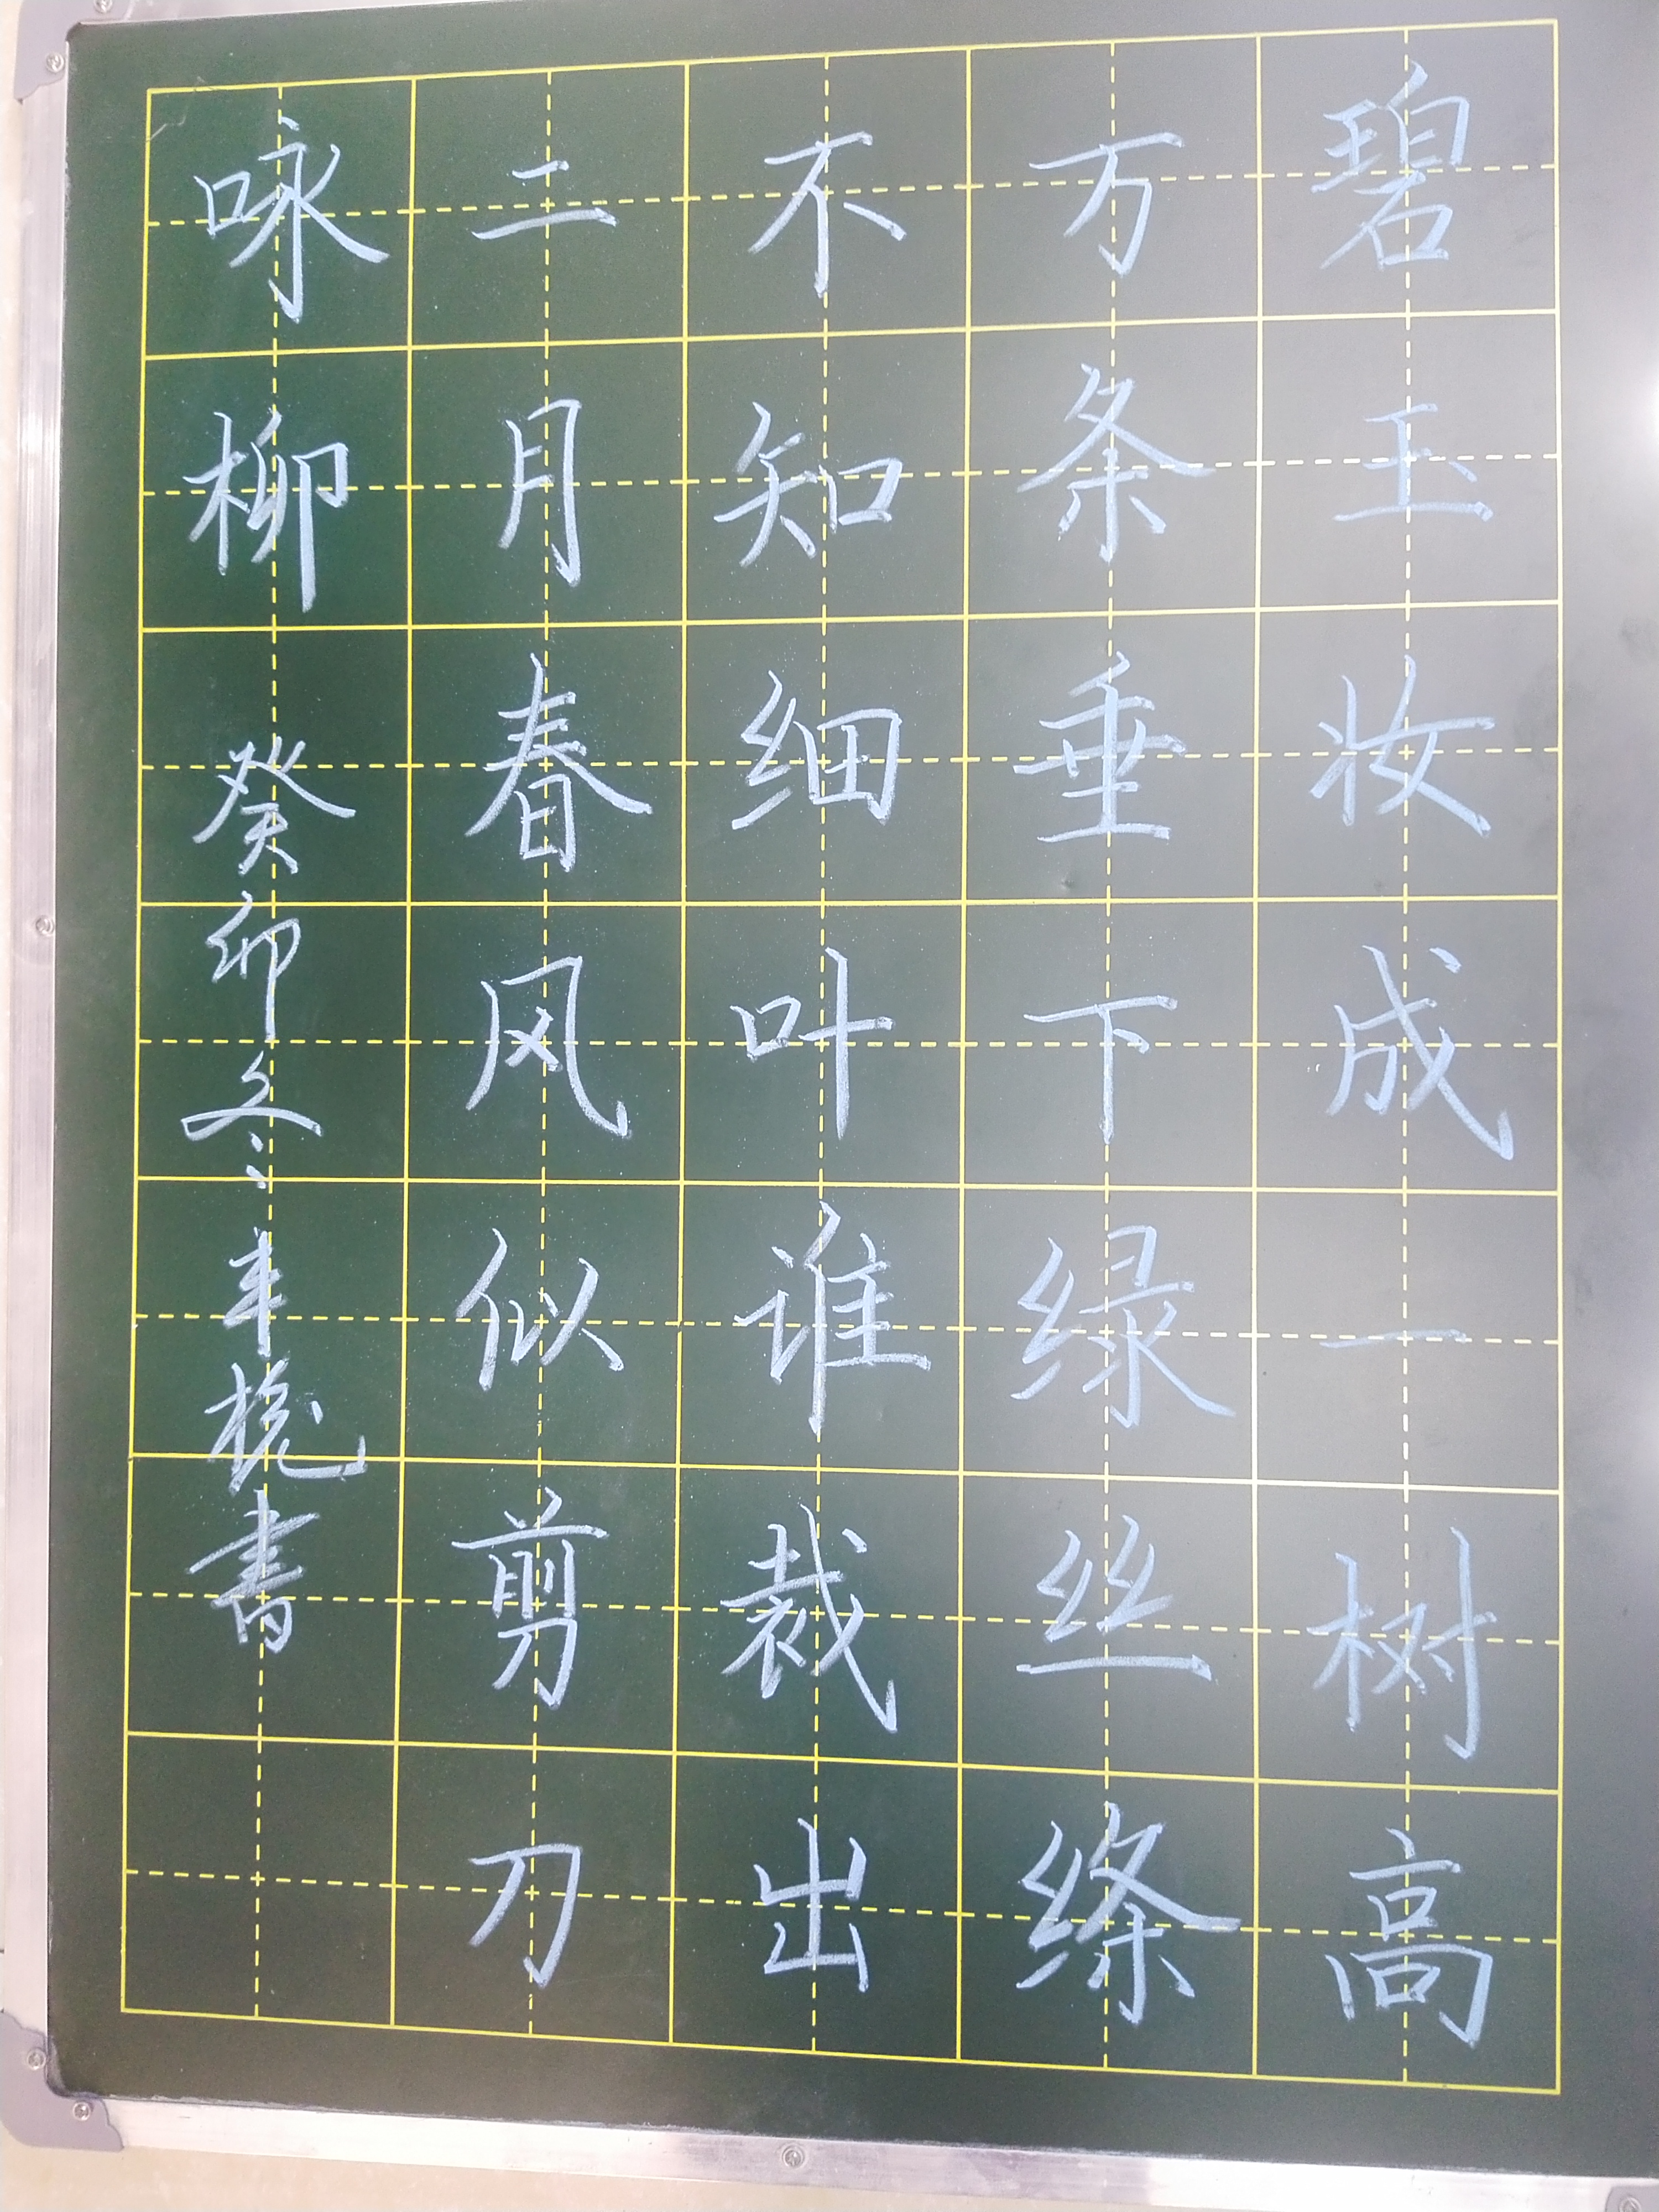 碧玉妆成一树高
万条垂下绿丝绦
不知细叶谁裁出
二月春风似剪刀
咏柳 癸卯冬 书